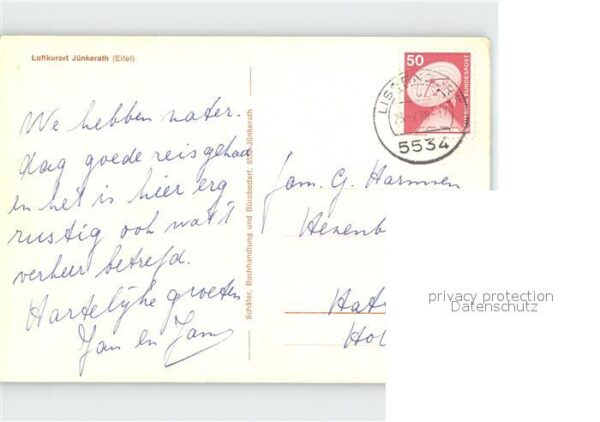 Luftkurort Jünkerath (Eifel)
We hebben zater-
dag goede reis gehad
en het is hier erg
rustig ook wat 't
verkeer betrefd.
Hartelijke groeten
Jan en
Schäfer, Buchhandlung und Bürobedarf, Jünkerath
50
DEUTSCHE BUNDESPOST
5534
Fam. G. Harmsen
Hat
Hol
privacy protection
Datenschutz